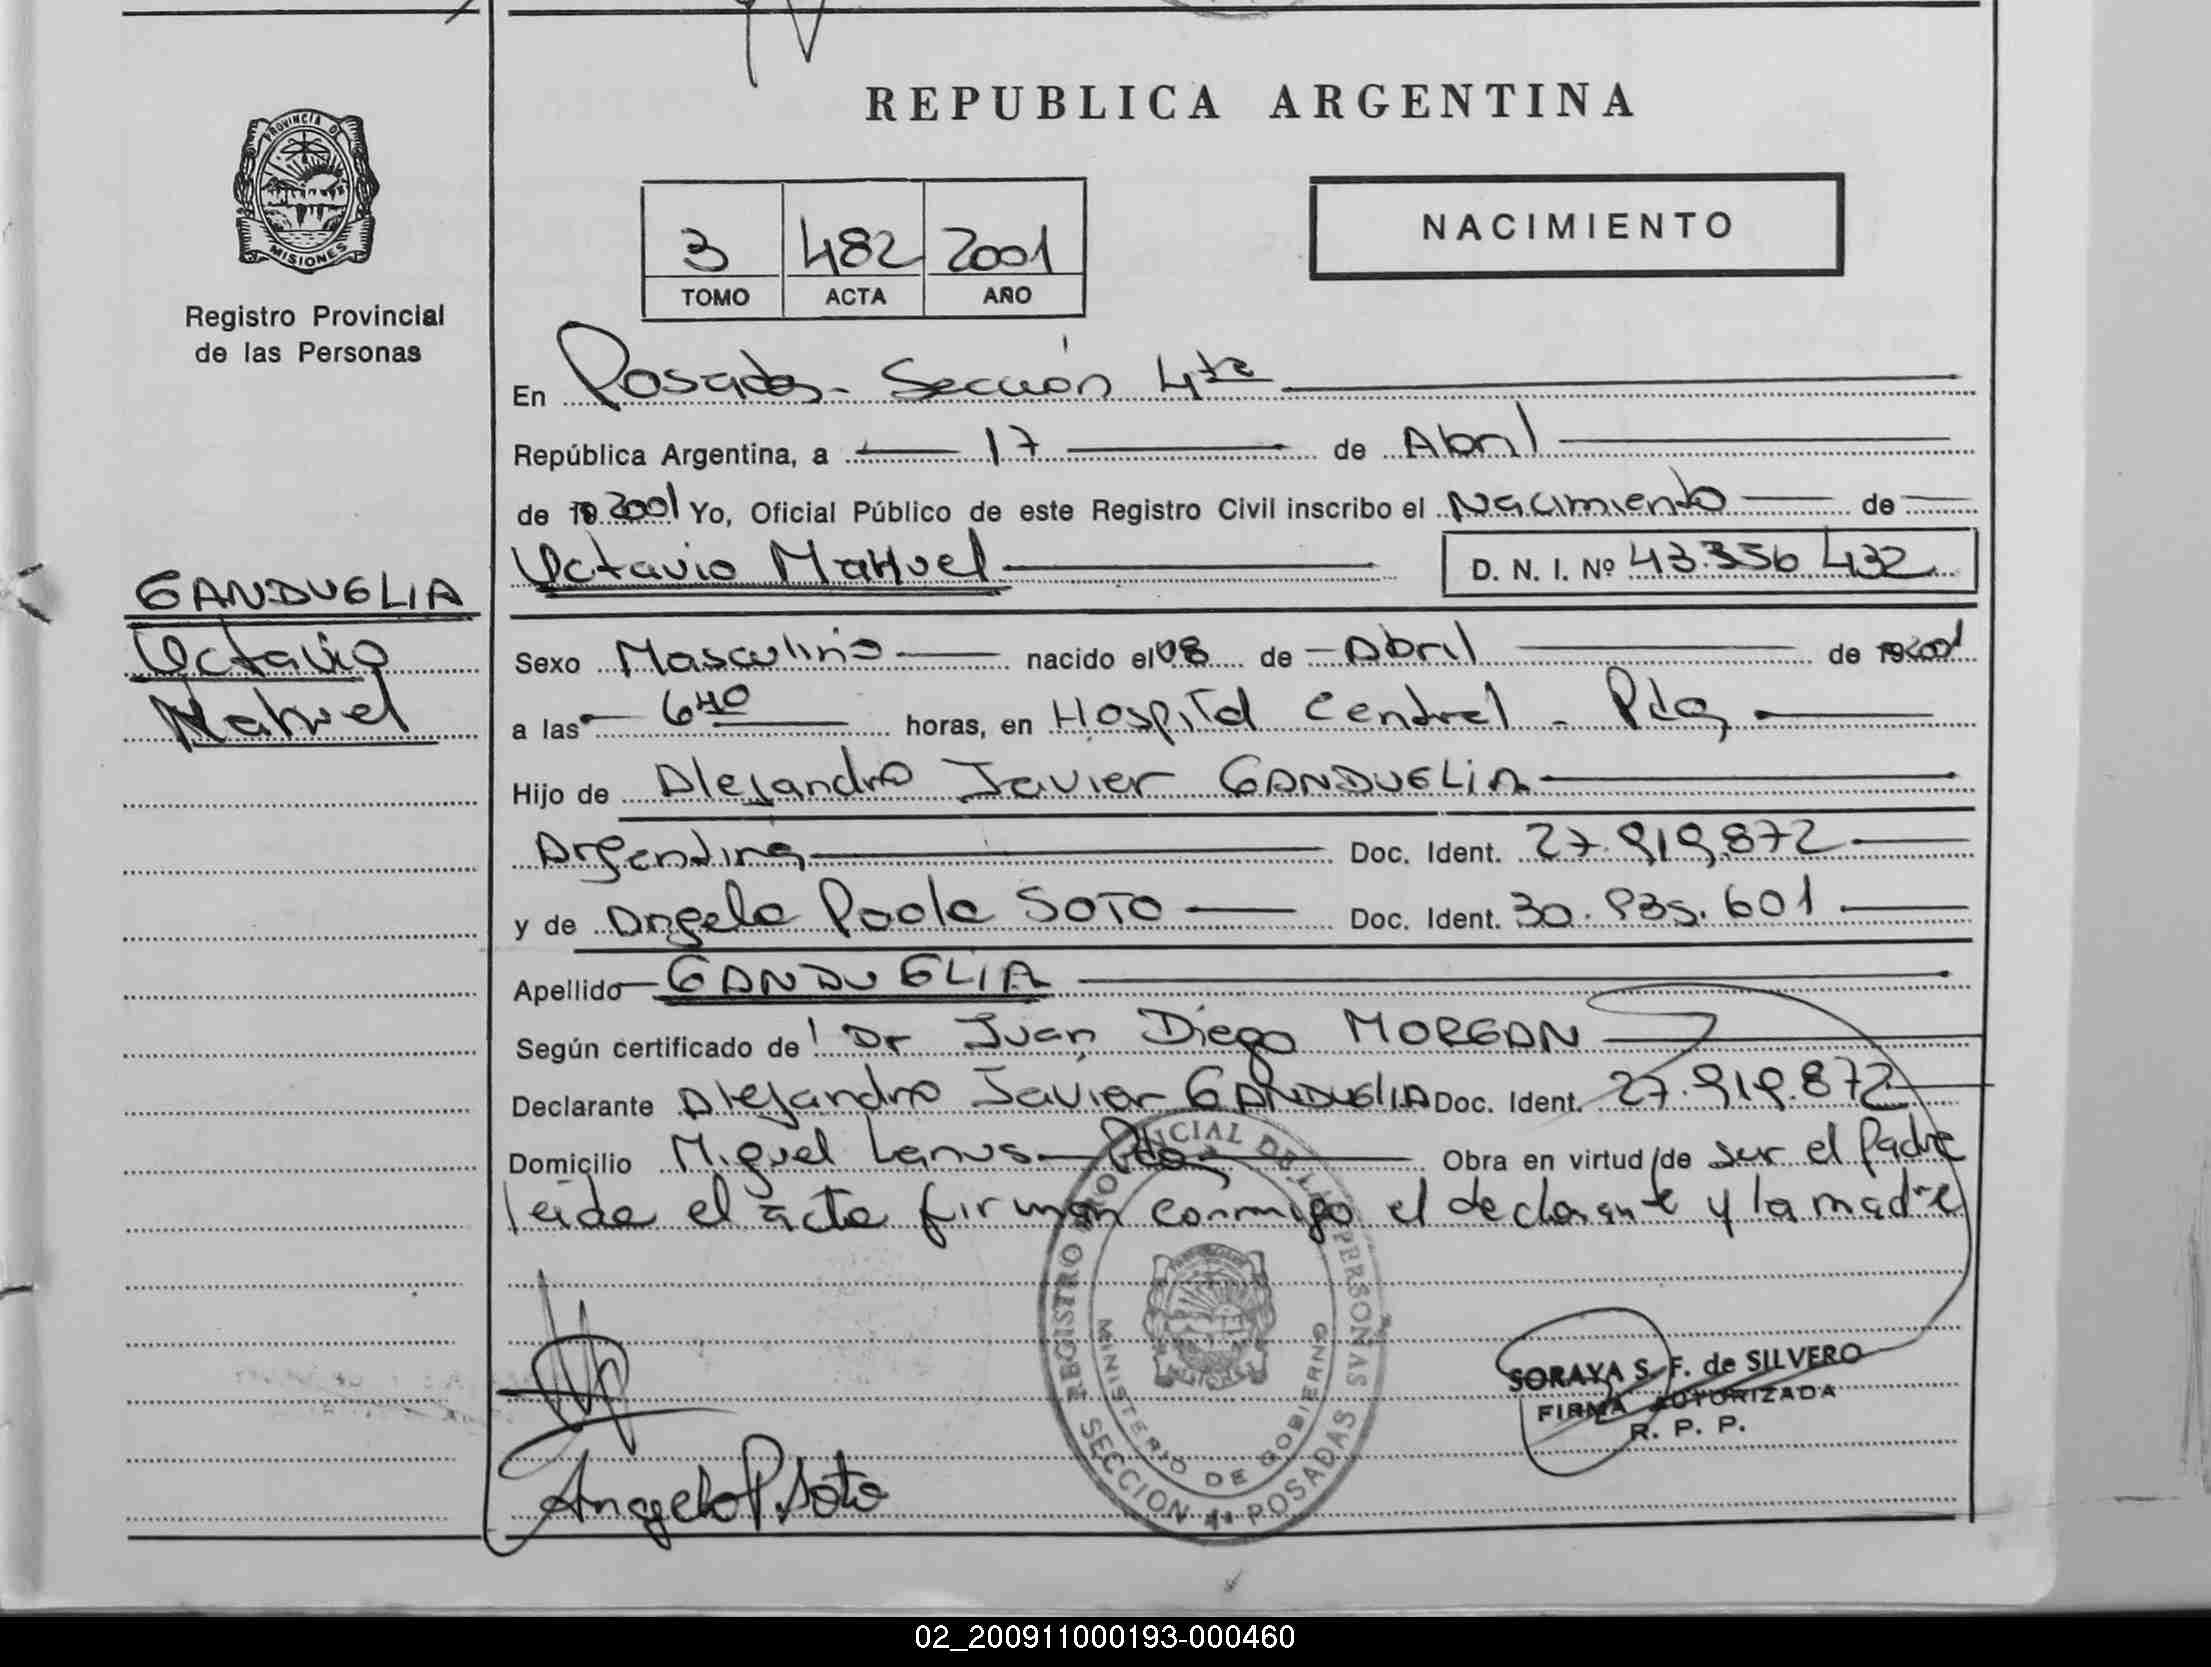 REPUBLICA ARGENTINA
PROVINCIA DE
MISIONES
Registro Provincial
de las Personas
NACIMIENTO
3 482 2001
TOMO ACTA AÑO
En Posadas - Sección 4ta
República Argentina, a 17 de Abril
de 19 2001 Yo, Oficial Público de este Registro Civil inscribo el Nacimiento de
Octavio Nahuel D. N. I. Nº 43.356 432
GANDUGLIA
Octavio
Nahuel
Sexo Masculino nacido el 08 de Abril de 19 2001
a las 6 40 horas, en Hospital Central - Pdas
Hijo de Alejandro Javier GANDUGLIA
Argentina Doc. Ident. 27.919.872
y de Angela Paola SOTO Doc. Ident. 30.935.601
Apellido GANDUGLIA
Según certificado de Dr Juan Diego MORGAN
Declarante Alejandro Javier GANDUGLIA Doc. Ident. 27.919.872
Domicilio Miguel Lanus - Pdas Obra en virtud de ser el Padre
leida el acta firman conmigo el declarante y la madre
REGISTRO PROVINCIAL DE LAS PERSONAS
MINISTERIO DE GOBIERNO
SECCION 4a POSADAS
SORAYA S. F. de SILVERO
FIRMA AUTORIZADA
R. P. P.
Angela P. Soto
02_200911000193-000460